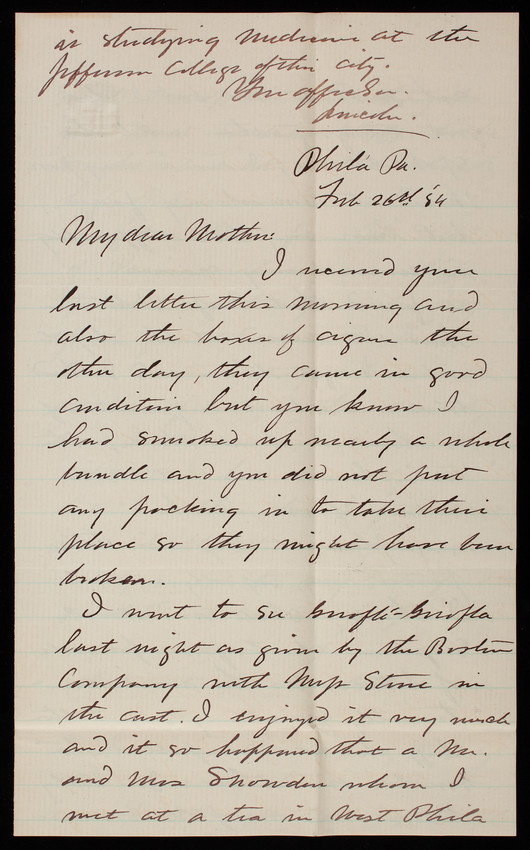 is studying medicine at the
Jefferson College of this city.
Your affec Son.
Lincoln.
Phila Pa.
Feb 26th '84
My dear Mother:
I received your
last letter this morning and
also the boxes of cigars the
other day, they came in good
condition but you know I
had smoked up nearly a whole
bundle and you did not put
any packing in to take their
place so they might have been
broken.
I went to see Giroflé-Girofla
last night as given by the Boston
Company with Miss Stone in
the cast. I enjoyed it very much
and it so happened that a Mr.
and Mrs Snowden whom I
met at a tea in West Phila